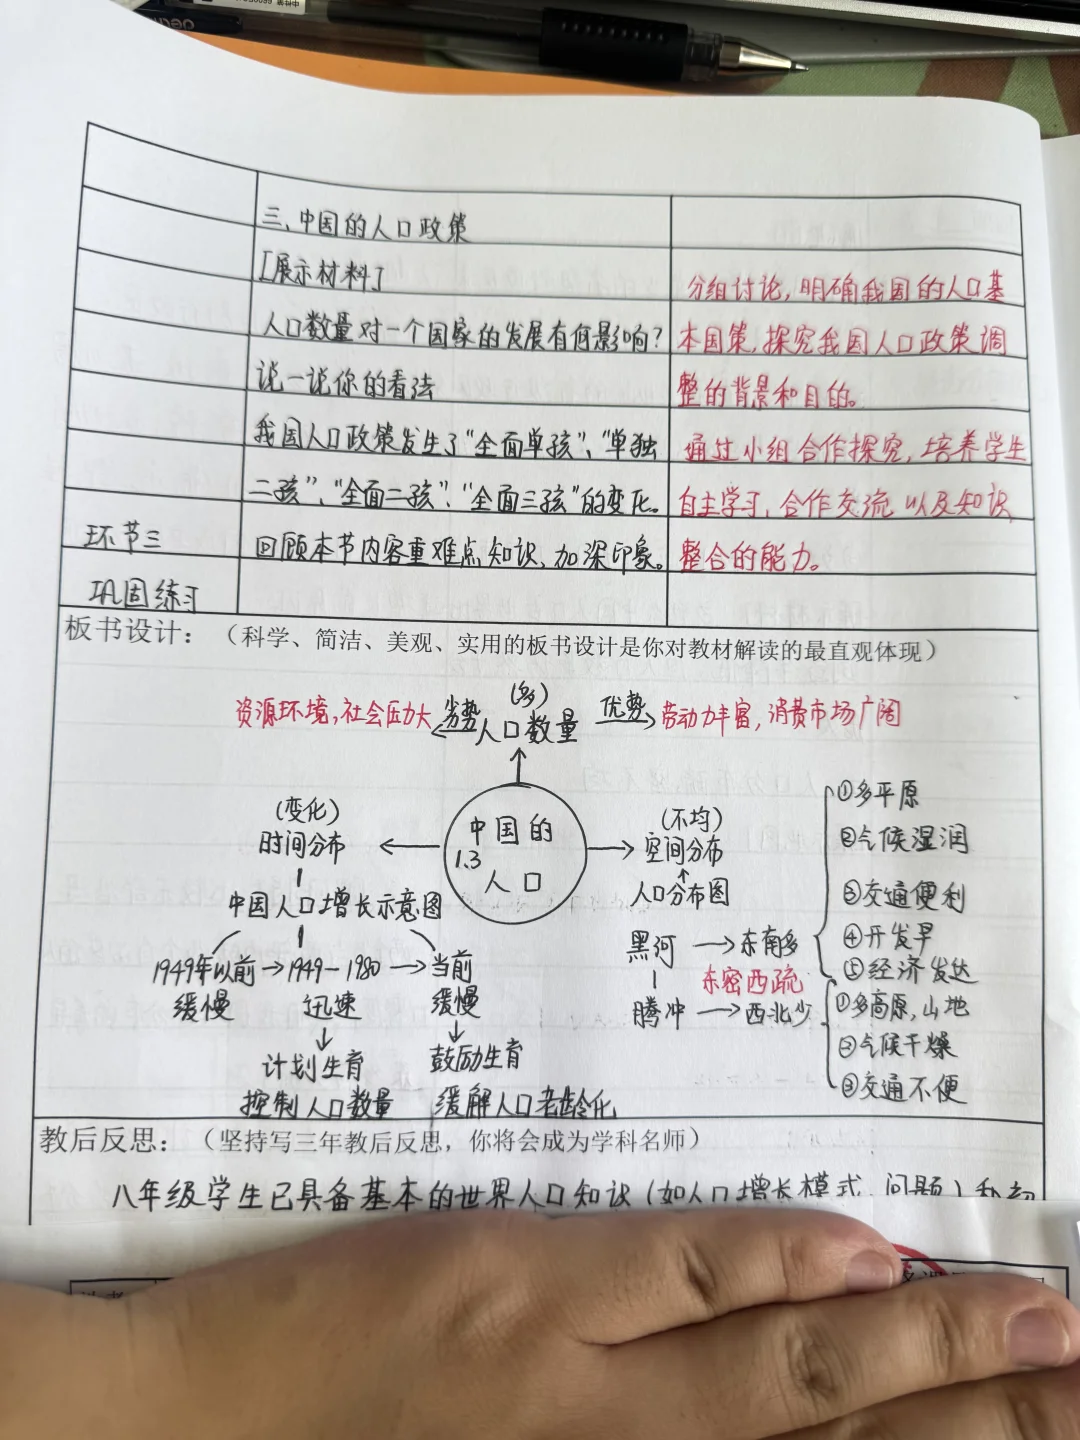 三、中国的人口政策
[展示材料]
人口数量对一个国家的发展有何影响?
说一说你的看法
我国人口政策发生了“全面单孩”、“单独
二孩”、“全面二孩”、“全面三孩”的变化。
环节三
回顾本节内容重难点知识,加深印象。
巩固练习
分组讨论,明确我国的人口基
本国策,探究我国人口政策调
整的背景和目的。
通过小组合作探究,培养学生
自主学习,合作交流以及知识
整合的能力。
板书设计:(科学、简洁、美观、实用的板书设计是你对教材解读的最直观体现)
(多)
资源环境,社会压力大 劣势 人口数量 优势 劳动力丰富,消费市场广阔
中国的
1.3
人口
(变化)
时间分布
中国人口增长示意图
1949年以前→1949—1980→当前
缓慢 迅速 缓慢
计划生育 鼓励生育
控制人口数量 缓解人口老龄化
(不均)
空间分布
人口分布图
黑河→东南多
东密西疏
腾冲→西北少
①多平原
②气候湿润
③交通便利
④开发早
⑤经济发达
①多高原,山地
②气候干燥
③交通不便
教后反思:(坚持写三年教后反思,你将会成为学科名师)
八年级学生已具备基本的世界人口知识(如人口增长模式、问题)和初